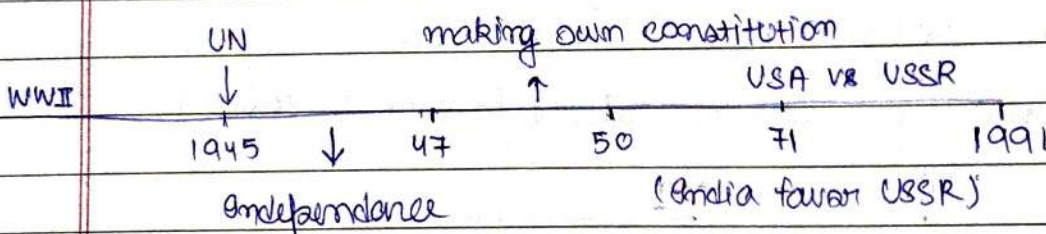 UN making own constitution
WWII ↓ ↑ USA vs USSR
1945 ↓ 47 50 71 1991
Independance (India favor USSR)